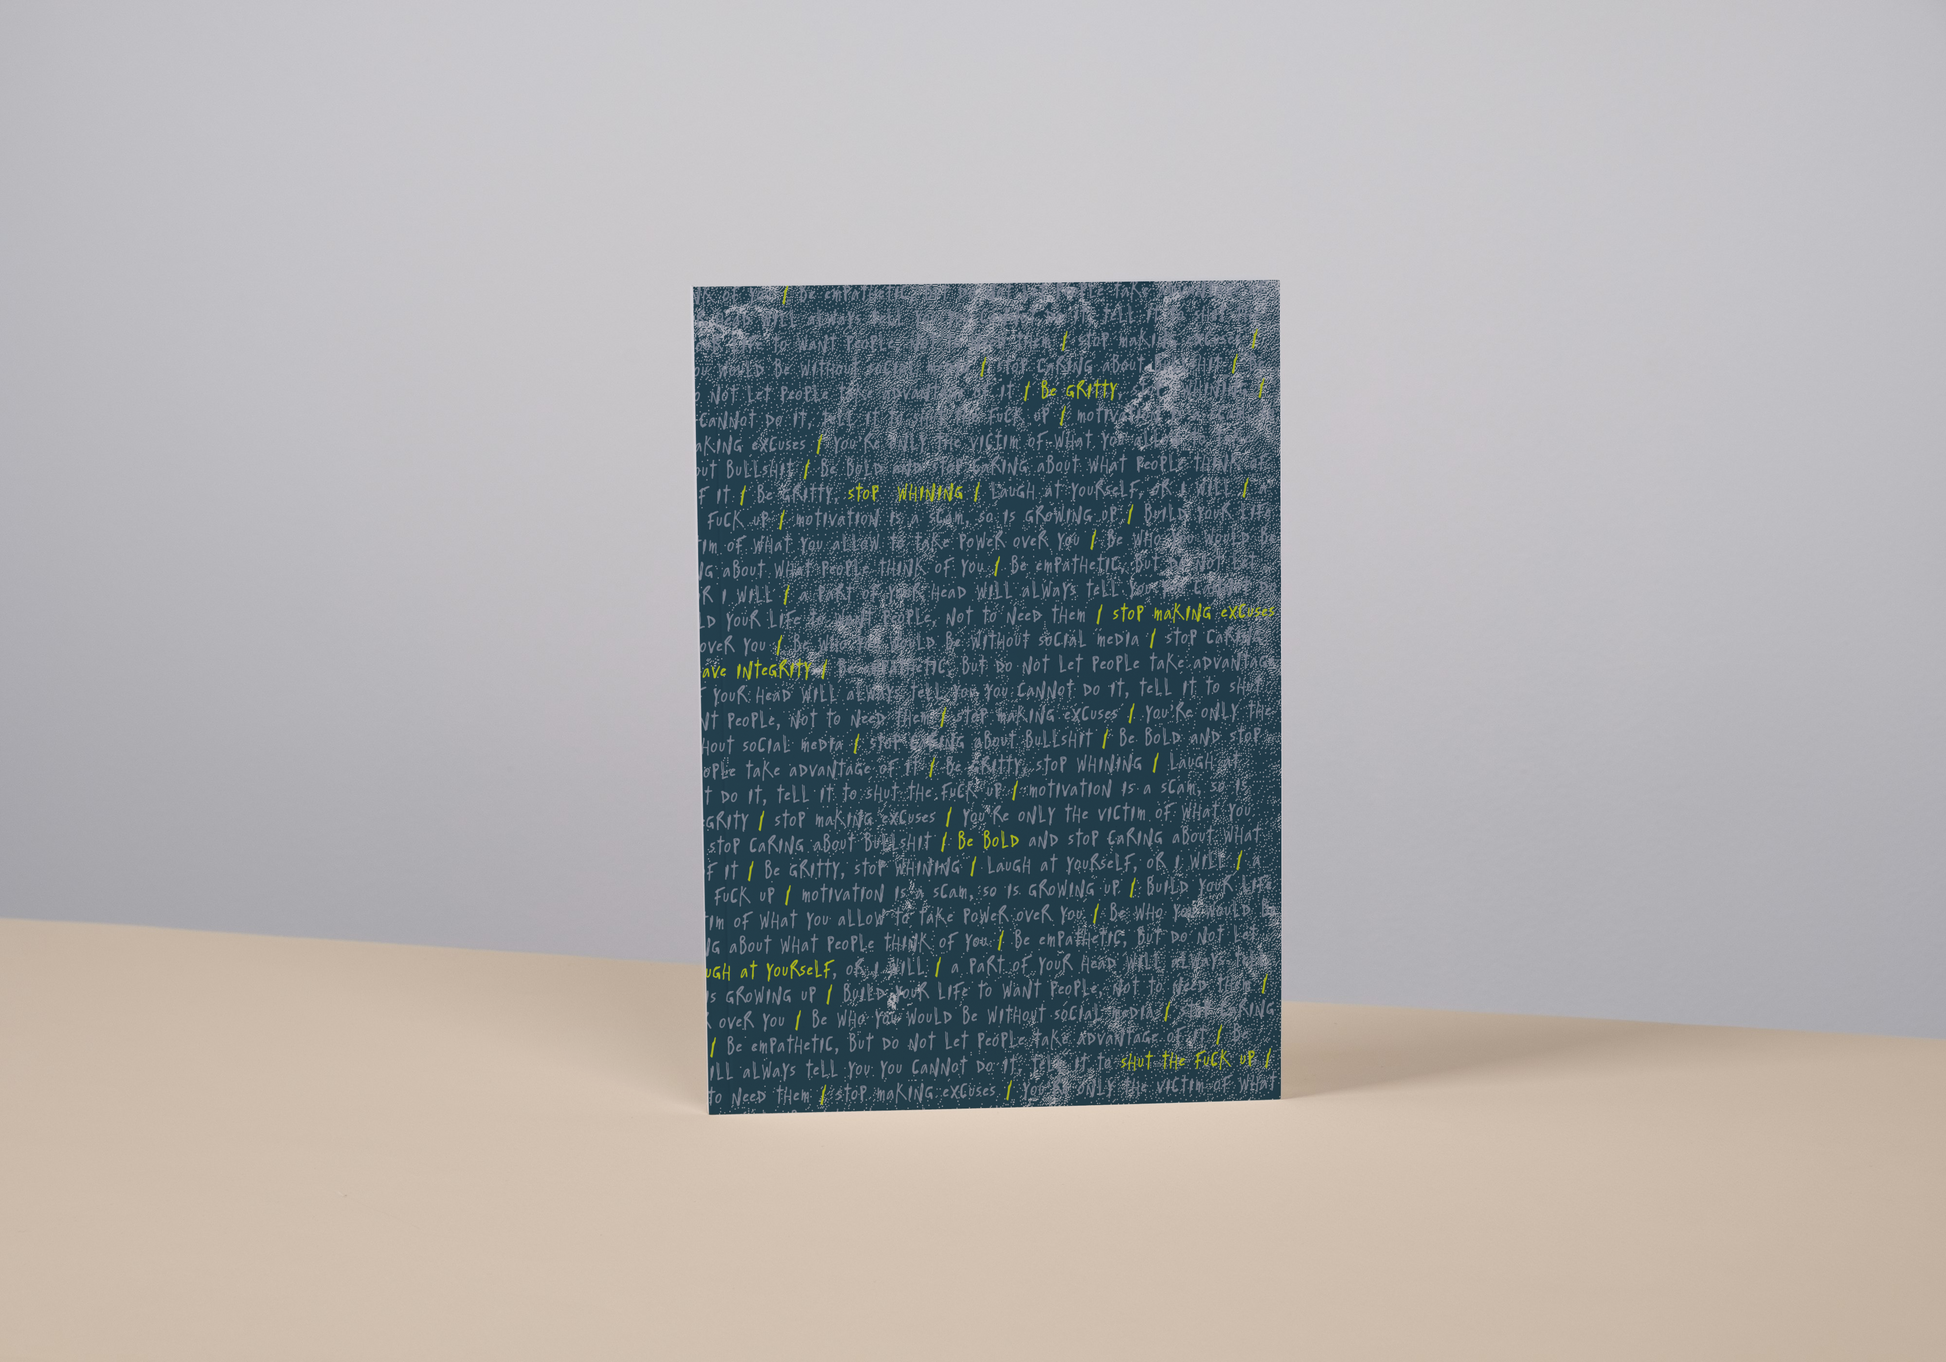 / Be empathetic take
will always tell tell it to shut
to want people, them / stop making excuses /
ou would be without social / stop caring about /
o not let people take advantage it / Be gritty, /
cannot do it, tell it to fuck up / motiv
aking excuses / you're only the victim of what you allow
out bullshit / Be bold and stop caring about what people think
f it / Be gritty, stop whining / Laugh at yourself, or I will /
fuck up / motivation is a scam, so is growing up / Build your life
tim of what you allow to take power over you / Be who you would be
ng about what people think of you / Be empathetic, but do not let
or I will / a part of your head will always tell you cannot
ld your life to want people, not to need them / stop making excuses
over you / Be who you would be without social media / stop caring
ave integrity / Be empathetic, but do not let people take advantage
f your head will always tell you you cannot do it, tell it to shut
nt people, not to need them / stop making excuses / you're only the
hout social media / stop caring about bullshit / Be bold and stop
ople take advantage of it / Be gritty, stop whining / Laugh at
t do it, tell it to shut the fuck up / motivation is a scam, so is
egrity / stop making excuses / you're only the victim of what you
stop caring about bullshit / Be bold and stop caring about what
f it / Be gritty, stop whining / Laugh at yourself, or I will / a
fuck up / motivation is a scam, so is growing up / Build your life
tim of what you allow to take power over you / Be who you would be
ng about what people think of you / Be empathetic, but do not let
ugh at yourself, or I will / a part of your head will always tell
is growing up / Build your life to want people, not to need them /
r over you / Be who you would be without social media / stop caring
/ Be empathetic, but do not let people take advantage of it / Be
ill always tell you you cannot do it, tell it to shut the fuck up /
to need them / stop making excuses / you're only the victim of what